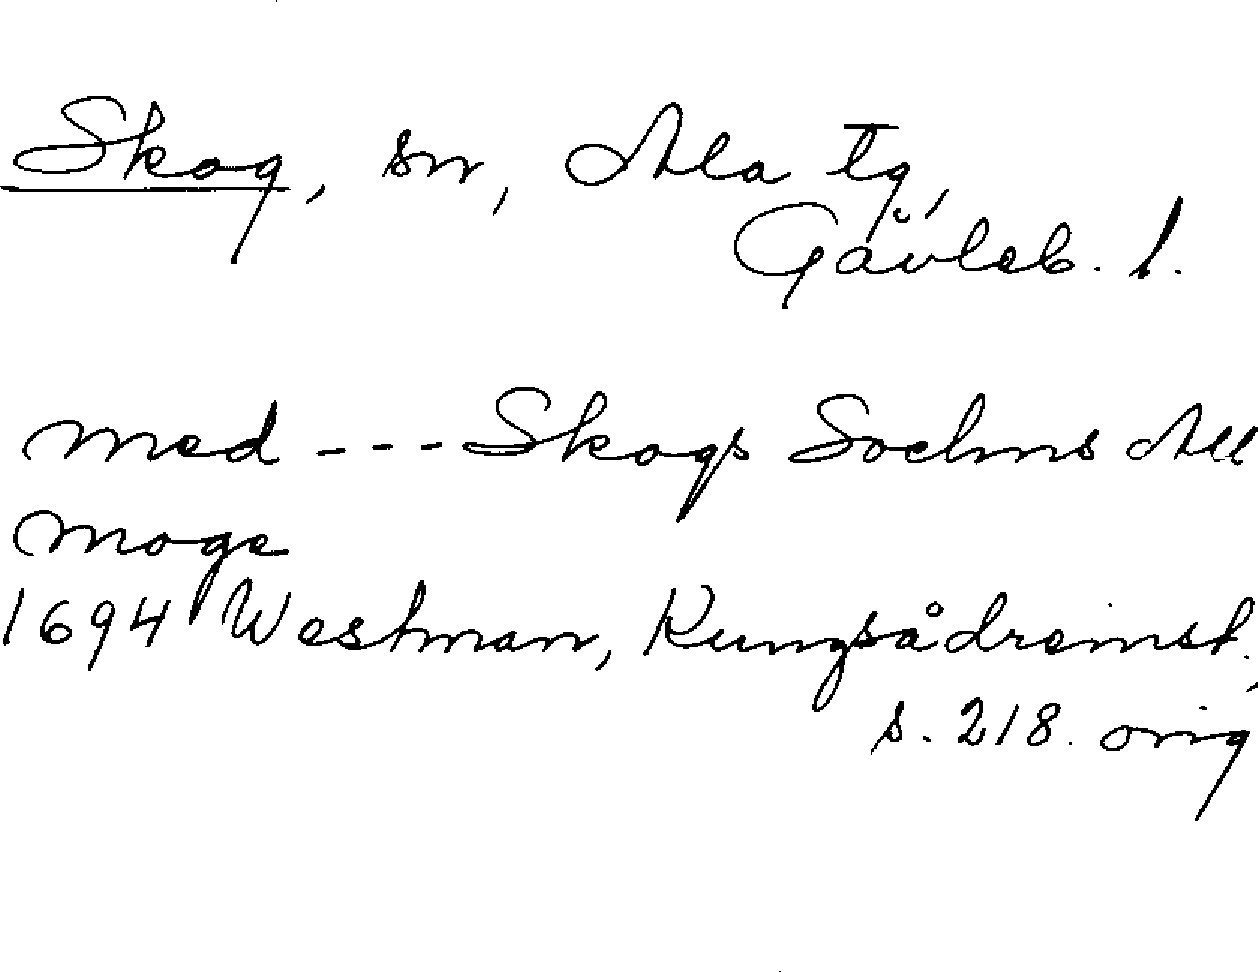 Skog, sn, Ala tg,
Gävleb. l.
med --- Skogs Sochns All
moge
1694 Westman, Kungsådremst.,
s. 218. orig